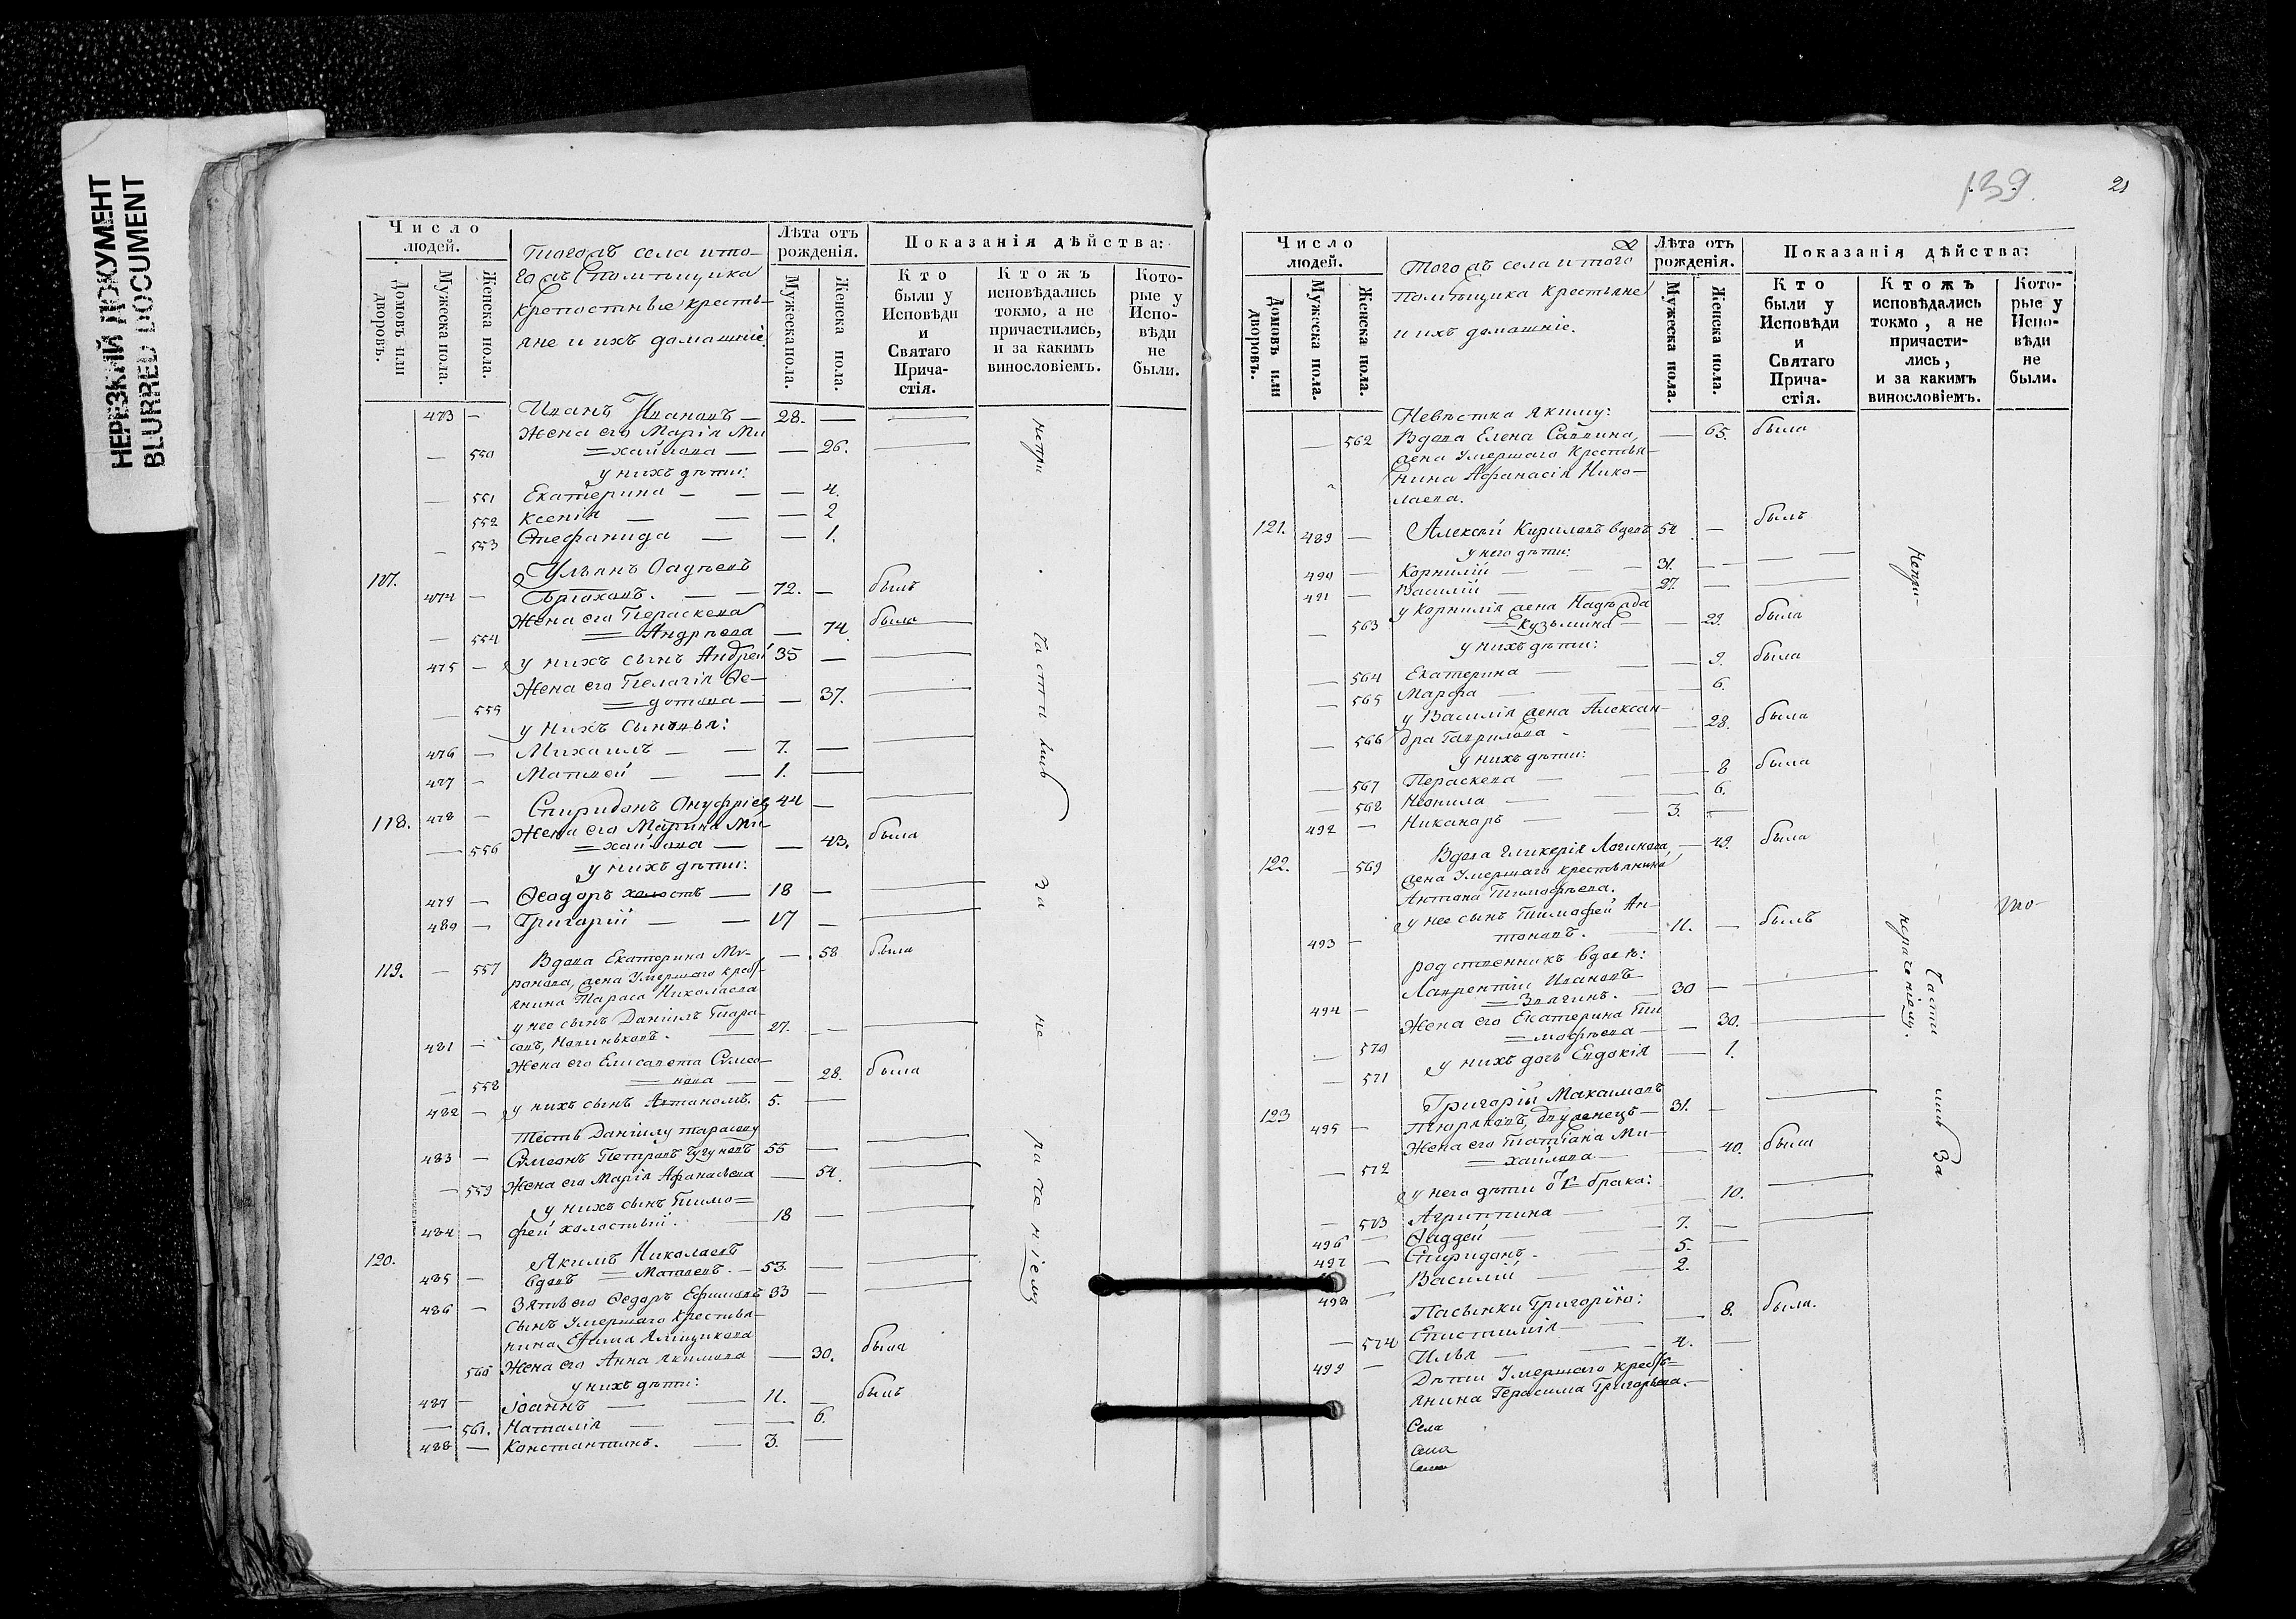 НЕРЕЗКИЙ ДОКУМЕНТ
BLURRED DOCUMENT
Число людей.
Домовъ или дворовъ.
Мужеска пола.
Женска пола.
Тогожъ села и то-
гожъ помѣщика
крепостные кресть-
яне и ихъ домашніе.
Лѣта отъ рожденія.
Мужеска пола.
Женска пола.
Показанія дѣйства:
Кто были у Исповѣди и Святаго Прича-стія.
Ктожъ исповѣдались токмо, а не причастились, и за какимъ винословіемъ.
Кото-рые у Испо-вѣди не были.
473 — Иванъ Ивановъ — 28. — —
Жена его Марія Ми
— 550 = хайлова — — 26. —
у нихъ дѣти:
— 551 Екатерина — — — 4.
552 Ксенія — — — 2
— 553 Стефанида — — 1.
117. Ульянъ Фадѣевъ
474 — — — 72. — былъ
Жена его Пераскева
— 554 = Андрѣева — 74. была
475 — у нихъ сынъ Андрей 35 — —
Жена его Пелагія Ѳе-
— 555 = дотова — — 37. —
у нихъ сыновья:
476 — Михаилъ — — 7. — —
477 — Матвей — — 1. —
118. 478 — Спиридонъ Онуфріевъ 44 — —
Жена его Марина Ми-
— 556 = хайлова — — 43. была
у нихъ дѣти:
479 — Ѳеодоръ холостъ — 18 — —
480 — Григорій — — 17 — —
119. — 557 Вдова Екатерина Ми- — 58 была
ронова, жена умершаго крест-
янина Тараса Николаева
у нее сынъ Даніилъ Тара-
481 — совъ, — 27. — —
Жена его Елисавета Симео-
— 558 = нова — — 28. была
482 — у нихъ сынъ Автономъ. 5. —
Тесть Даніилу Тарасову
483 — Симеонъ Петровъ Чугуновъ 55 — —
— 559 Жена его Марія Афанасьева — 54. —
у нихъ сынъ Тимо=
484 — фей холостый. 18 — —
120. Якимъ Николаевъ
485 — вдовъ = Матвеевъ. — 53. — —
486 — Зять его Ѳедоръ Ефимовъ 33 — —
сынъ умершаго крестья-
нина Ефима Ямщикова
560 Жена его Анна Якимова — 30. была
у нихъ дѣти:
487 — Іоаннъ — — 11. — былъ
— 561. Наталія — — — 6.
488 — Константинъ. — 3. —
непри
частились
за
не
раченіемъ
139.
21
Число людей.
Домовъ или дворовъ.
Мужеска пола.
Женска пола.
Тогожъ села и того
помѣщика крестьяне
и ихъ домашніе.
Лѣта отъ рожденія.
Мужеска пола.
Женска пола.
Показанія дѣйства:
Кто были у Исповѣди и Святаго Прича-стія.
Ктожъ исповѣдались токмо, а не причасти-лись, и за какимъ винословіемъ.
Кото-рые у Испо-вѣди не были.
Невѣстка Якиму:
— 562 Вдова Елена Саввина, — 65. была
жена умершаго крестья-
нина Афанасія Нико-
лаева.
121. 489 — Алексѣй Кириловъ вдовъ 54 — былъ
у него дѣти:
490 — Корнилій — — 31. — —
491 — Василій — 27. — —
у Корнилія жена Надѣжда
— 563 = Кузьмина — — 29. была
у нихъ дѣти:
— 564 Екатерина — — 9. была
— 565 Марфа — — — 6.
у Василія жена Алексан-
— 566 дра Гаврилова — 28. была
у нихъ дѣти:
— 567 Пераскева — — 8 была
— 568 Неонила — — 6.
492 — Никаноръ — — 3. —
122. — 569 Вдова Гликерія Логинова, — 49. была
жена умершаго крестьянина
Антона Тимофѣева.
у нее сынъ Тимофей Ан-
493 — тоновъ. — 11. — былъ
родственникъ вдовѣ:
Лаврентій Ивановъ
494 — = Звягинъ. — 30 — —
Жена его Екатерина Ти
— 570 = мофѣева — — 30. —
— 571 у нихъ дочь Евдокія — 1.
123 Григорій Максимовъ
495 — Тюряковъ, двуженецъ — 31. — —
Жена его Татіана Ми-
— 572 = хайлова — — 40. была
у него дѣти 1го брака:
— 573 Агриппина — — 10. —
496 — Фаддей — — 7. — —
497 — Спиридонъ — — 5. —
498 — Василій — — 2.
Пасынки Григорію:
— 574 Епистимія — — 8. была.
499 — Илья — — 4. —
Дѣти умершаго крестъ=
янина Герасима Григорьева. —
Села
Непри-
части
лись
За
нераченіемъ.